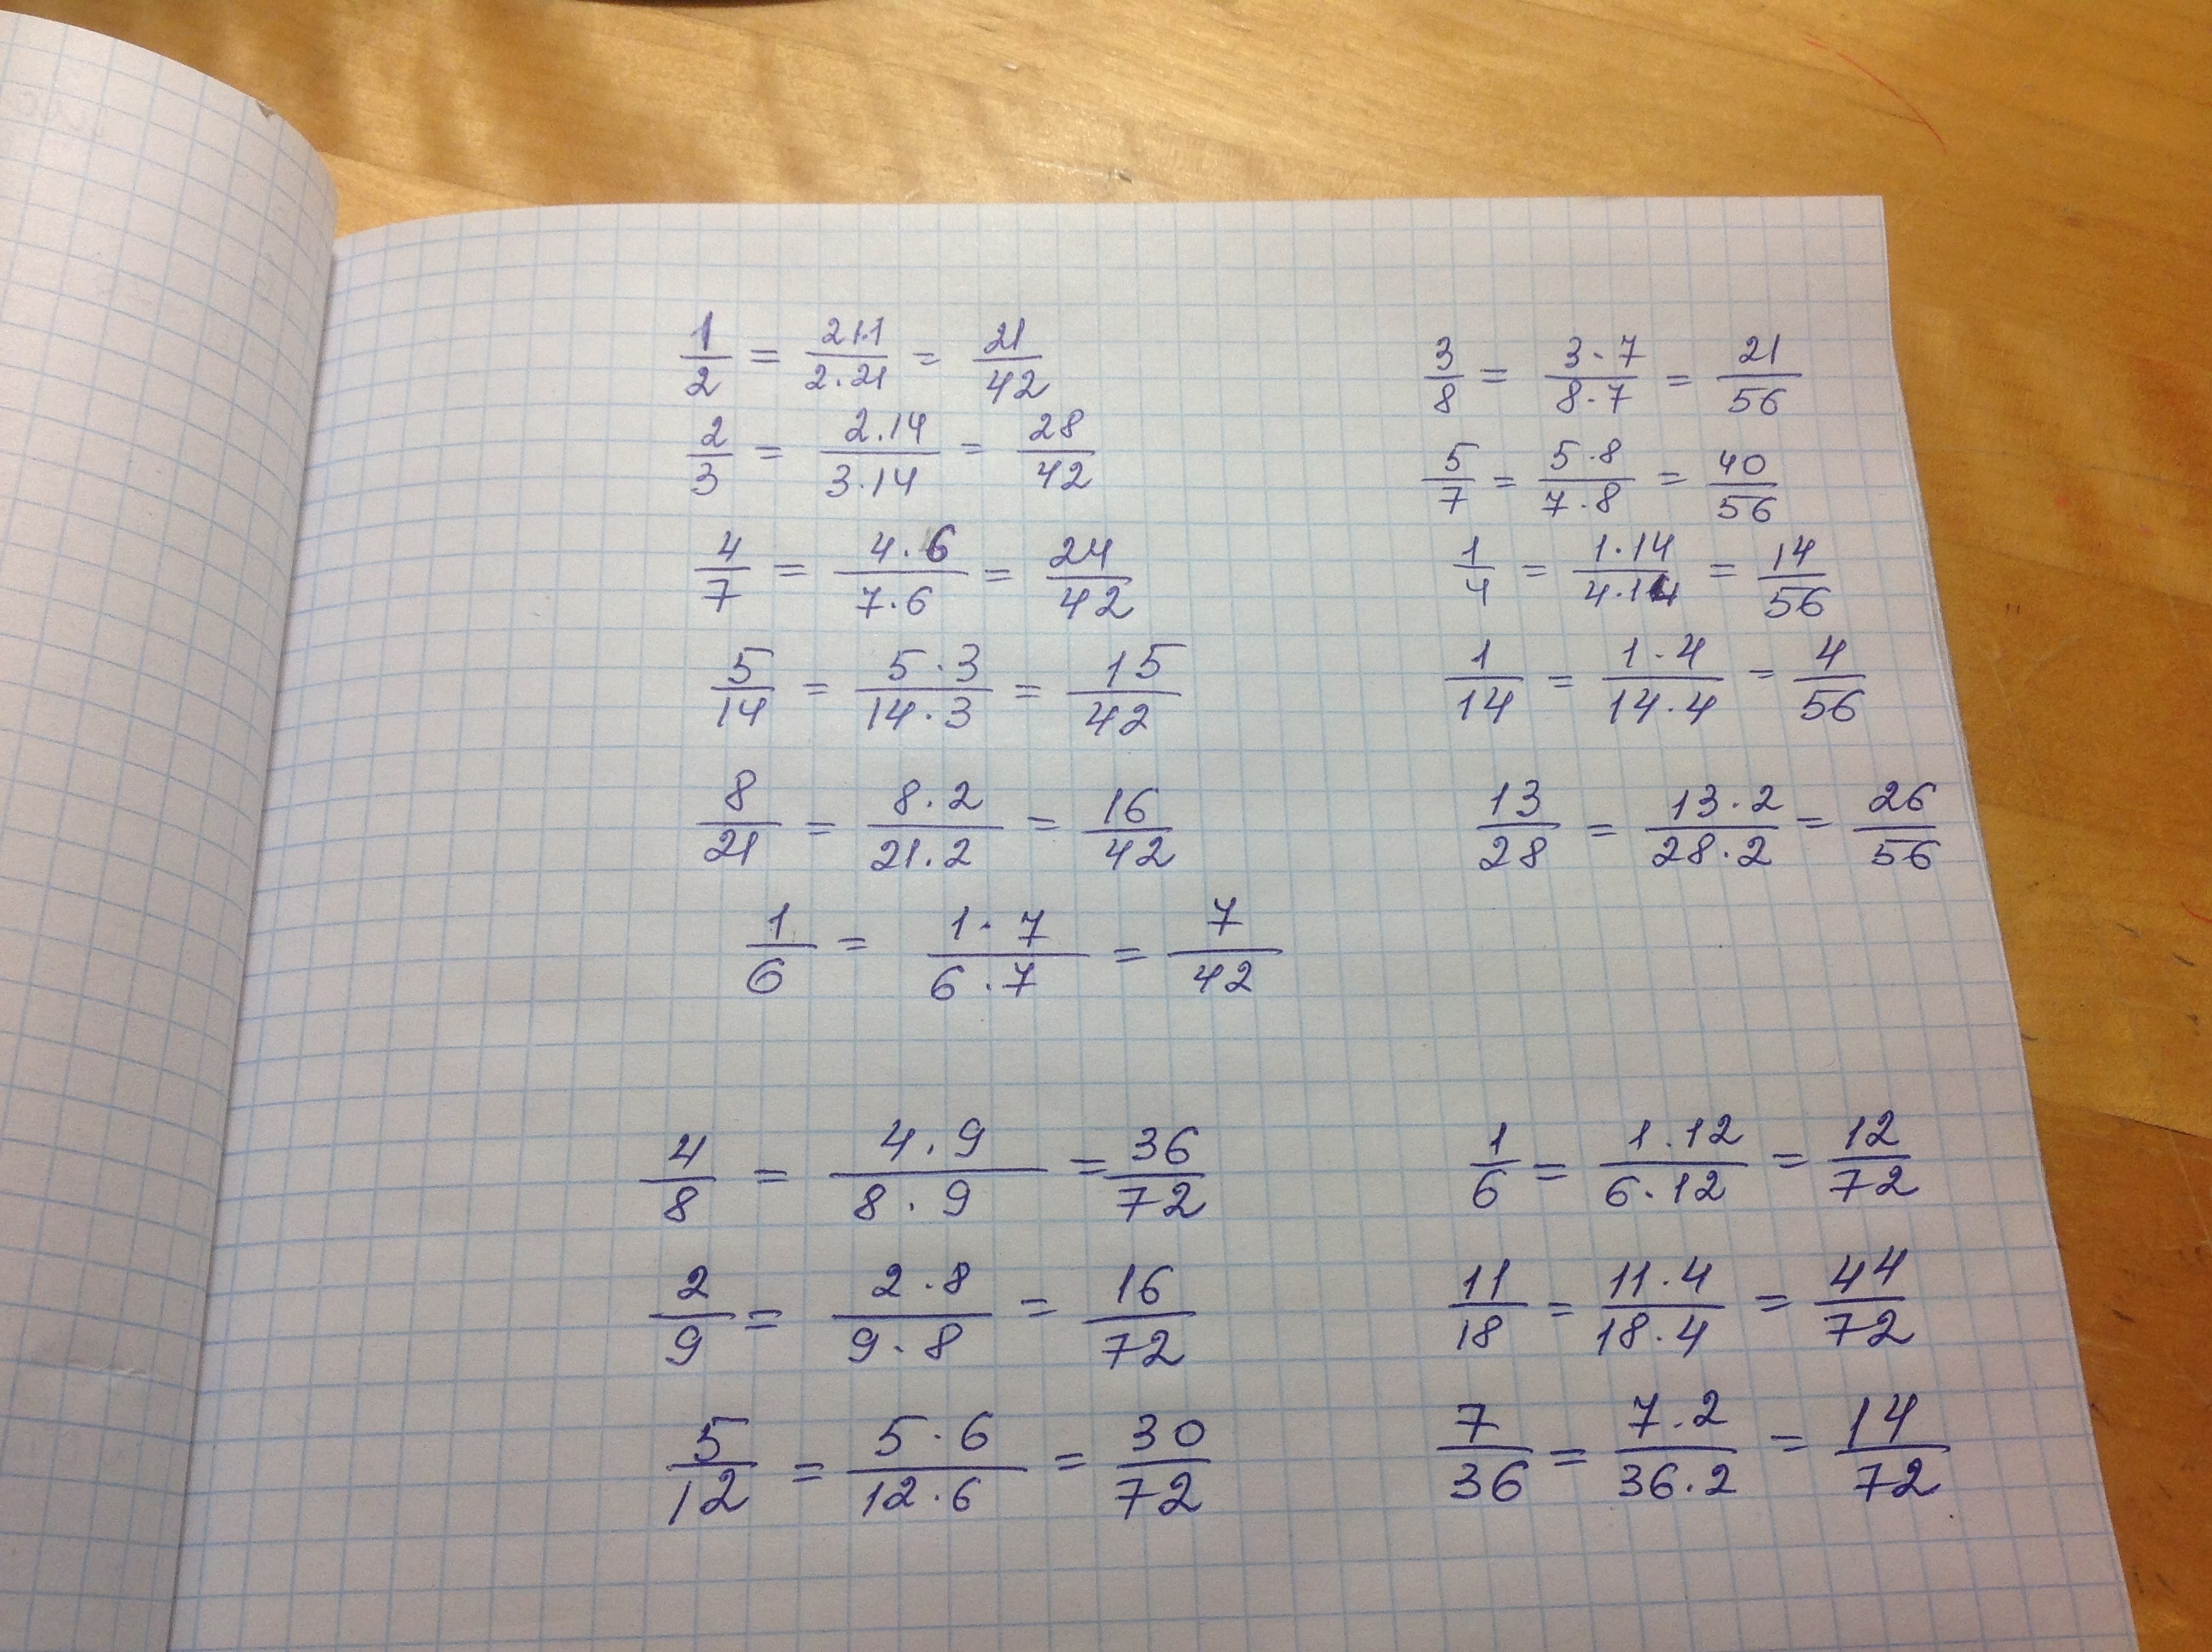 1/2 = 21·1/2·21 = 21/42
2/3 = 2·14/3·14 = 28/42
4/7 = 4·6/7·6 = 24/42
5/14 = 5·3/14·3 = 15/42
8/21 = 8·2/21·2 = 16/42
1/6 = 1·7/6·7 = 7/42
3/8 = 3·7/8·7 = 21/56
5/7 = 5·8/7·8 = 40/56
1/4 = 1·14/4·14 = 14/56
1/14 = 1·4/14·4 = 4/56
13/28 = 13·2/28·2 = 26/56
4/8 = 4·9/8·9 = 36/72
2/9 = 2·8/9·8 = 16/72
5/12 = 5·6/12·6 = 30/72
1/6 = 1·12/6·12 = 12/72
11/18 = 11·4/18·4 = 44/72
7/36 = 7·2/36·2 = 14/72